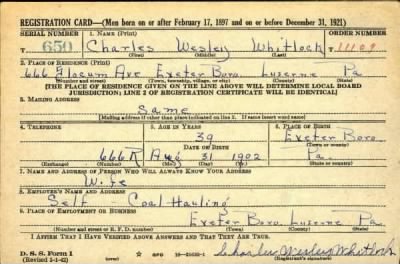 REGISTRATION CARD—(Men born on or after February 17, 1897 and on or before December 31, 1921)
SERIAL NUMBER 1. NAME (Print) ORDER NUMBER
650 Charles Wesley Whitlock 11109
(First) (Middle) (Last)
2. PLACE OF RESIDENCE (Print)
666 Slocum Ave Exeter Boro. Luzerne Pa
(Number and street) (Town, township, village, or city) (County) (State)
[THE PLACE OF RESIDENCE GIVEN ON THE LINE ABOVE WILL DETERMINE LOCAL BOARD
JURISDICTION; LINE 2 OF REGISTRATION CERTIFICATE WILL BE IDENTICAL]
3. MAILING ADDRESS
Same
[Mailing address if other than place indicated on line 2. If same insert word same]
4. TELEPHONE 5. AGE IN YEARS 6. PLACE OF BIRTH
39 Exeter Boro.
DATE OF BIRTH (Town or county)
666R Aug 31 1902 Pa.
(Exchange) (Number) (Mo.) (Day) (Yr.) (State or country)
7. NAME AND ADDRESS OF PERSON WHO WILL ALWAYS KNOW YOUR ADDRESS
Wife
8. EMPLOYER'S NAME AND ADDRESS
Self Coal Hauling
9. PLACE OF EMPLOYMENT OR BUSINESS
Exeter Boro. Luzerne Pa.
(Number and street or R. F. D. number) (Town) (County) (State)
I AFFIRM THAT I HAVE VERIFIED ABOVE ANSWERS AND THAT THEY ARE TRUE.
D. S. S. Form 1 GPO Charles Wesley Whitlock
(Revised 1-1-42) (Registrant's signature)